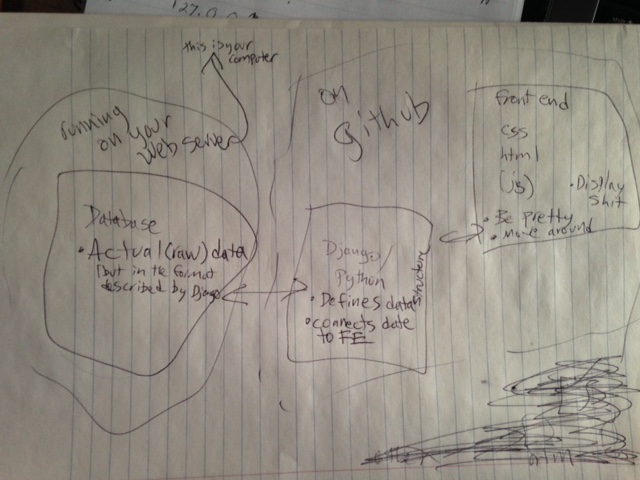 this is your
computer
running
on your
web server
Database
• Actual (raw) data
(but in the format
described by Django
on
github
Django/
Python
• Defines data structure
• connects data
to FE
front end
css
html
(js)
• Display
shit
• Be pretty
• move around
127.0.